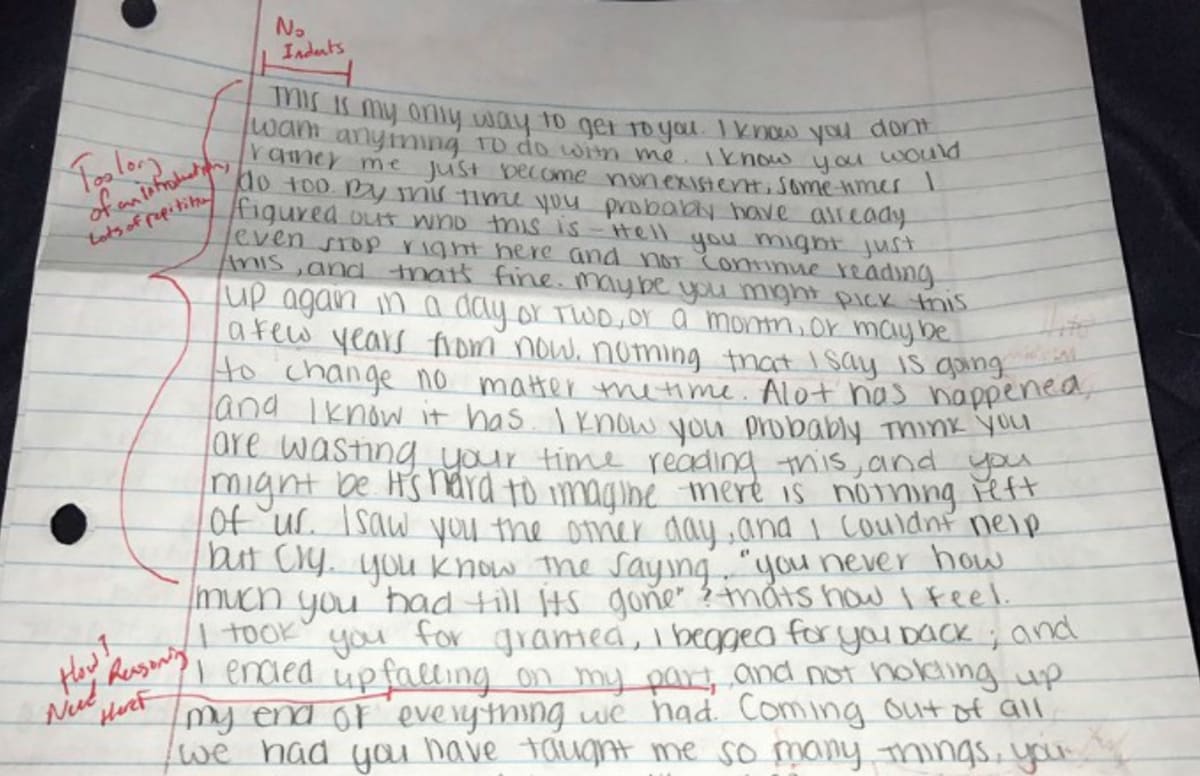 No
Indents
This is my only way to get to you. I know you dont
want anything to do with me. I know you would
rather me just become nonexistent, sometimes I
do too. By this time you probably have already
figured out who this is - Hell you might just
even stop right here and not continue reading
this, and that's fine. maybe you might pick this
up again in a day or two, or a month, or maybe
a few years from now. nothing that I say is going
to change no matter the time. Alot has happened,
and I know it has. I know you probably think you
are wasting your time reading this, and you
might be. It's hard to imagine there is nothing left
of us. I saw you the other day, and I couldnt help
but cry. you know the saying. "you never how
much you had till its gone" ? thats how I feel.
I took you for granted, I begged for you back ; and
I ended up falling on my part, and not holding up
my end of everything we had. Coming out of all
we had you have taught me so many things, you
Too long
of an introduction,
Lots of repitition
How?
Need Reasoning
Here